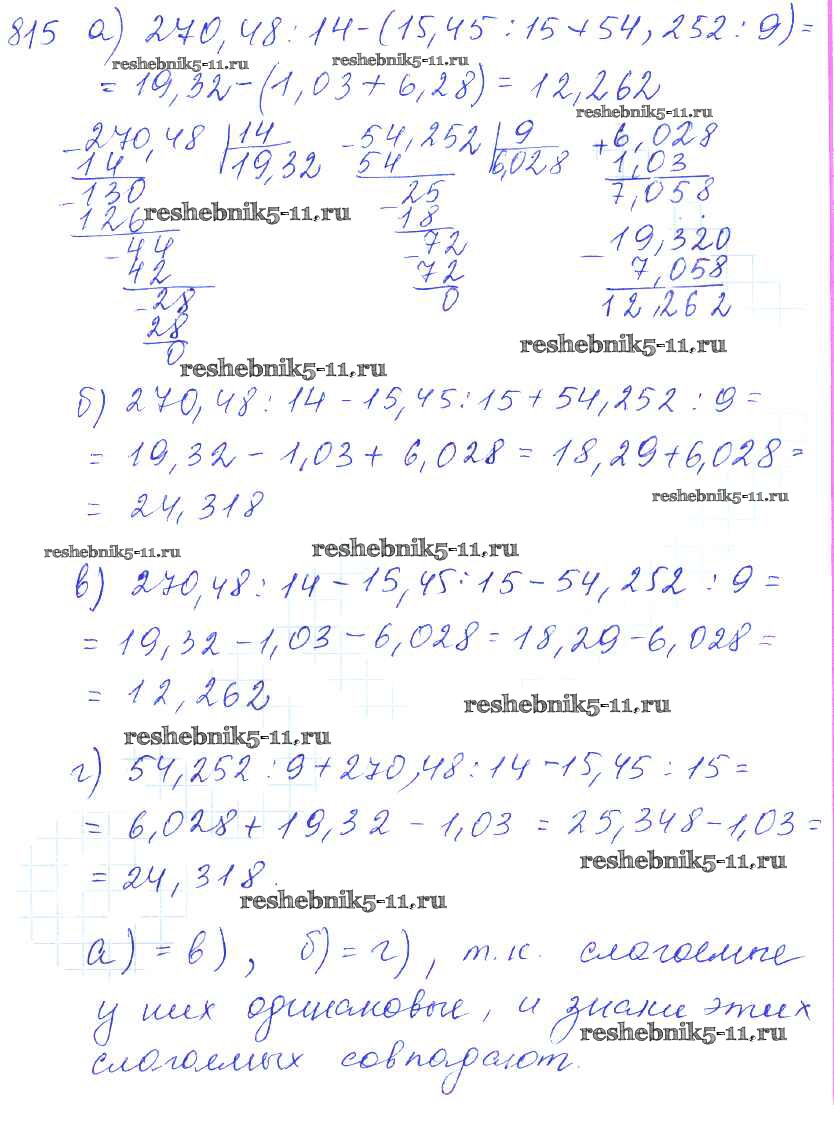 815 а) 270,48 : 14 - (15,45 : 15 + 54,252 : 9) =
reshebnik5-11.ru reshebnik5-11.ru
= 19,32 - (1,03 + 6,28) = 12,262
reshebnik5-11.ru
- 270,48 | 14 - 54,252 | 9 + 6,028
14 19,32 54 6,028 1,03
- 130 25 7,058
126 reshebnik5-11.ru - 18
- 44 - 72 - 19,320
42 72 7,058
- 28 0 12,262
28
0
reshebnik5-11.ru reshebnik5-11.ru
б) 270,48 : 14 - 15,45 : 15 + 54,252 : 9 =
= 19,32 - 1,03 + 6,028 = 18,29 + 6,028 =
= 24,318
reshebnik5-11.ru
reshebnik5-11.ru reshebnik5-11.ru
в) 270,48 : 14 - 15,45 : 15 - 54,252 : 9 =
= 19,32 - 1,03 - 6,028 = 18,29 - 6,028 =
= 12,262
reshebnik5-11.ru
reshebnik5-11.ru
г) 54,252 : 9 + 270,48 : 14 - 15,45 : 15 =
= 6,028 + 19,32 - 1,03 = 25,348 - 1,03 =
reshebnik5-11.ru
= 24,318.
reshebnik5-11.ru
а) = в), б) = г), т.к. слагаемые
у них одинаковые, и знаки этих
reshebnik5-11.ru
слагаемых совпадают.